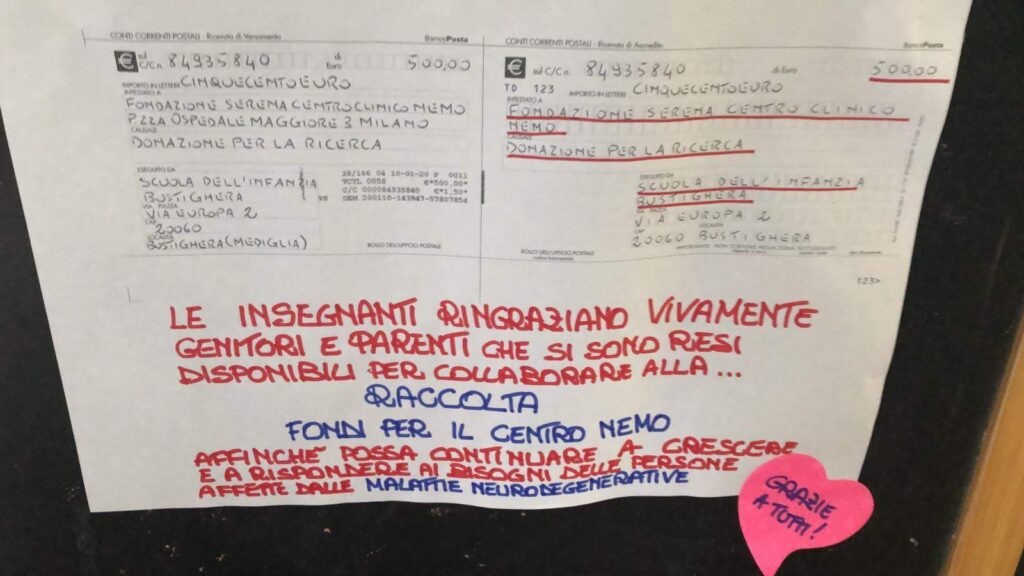 CONTI CORRENTI POSTALI - Ricevuta di Versamento BancoPosta
€ sul C/C n. 84935840 di Euro 500,00
IMPORTO IN LETTERE CINQUECENTO EURO
INTESTATO A
FONDAZIONE SERENA CENTRO CLINICO NEMO
P.ZZA OSPEDALE MAGGIORE 3 MILANO
CAUSALE
DONAZIONE PER LA RICERCA
ESEGUITO DA
SCUOLA DELL'INFANZIA
BUSTIGHERA
VIA PIAZZA
VIA EUROPA 2
CAP
20060
LOCALITÀ
BUSTIGHERA (MEDIGLIA)
38/166 04 10-01-20 P 0011
TCYL 0058 €*500,00*
C/C 000084935840 €*1,50*
BOLLO DELL'UFFICIO POSTALE
CONTI CORRENTI POSTALI - Ricevuta di Accredito BancoPosta
€ sul C/C n. 84935840 di Euro 500,00
TD 123 IMPORTO IN LETTERE CINQUECENTO EURO
INTESTATO A
FONDAZIONE SERENA CENTRO CLINICO
NEMO
CAUSALE
DONAZIONE PER LA RICERCA
ESEGUITO DA
SCUOLA DELL'INFANZIA
BUSTIGHERA
VIA PIAZZA
VIA EUROPA 2
CAP LOCALITÀ
20060 BUSTIGHERA
BOLLO DELL'UFFICIO POSTALE
123>
LE INSEGNANTI RINGRAZIANO VIVAMENTE
GENITORI E PARENTI CHE SI SONO RESI
DISPONIBILI PER COLLABORARE ALLA...
RACCOLTA
FONDI PER IL CENTRO NEMO
AFFINCHÈ POSSA CONTINUARE A CRESCERE
E A RISPONDERE AI BISOGNI DELLE PERSONE
AFFETTE DALLE MALATTIE NEURODEGENERATIVE
GRAZIE
A TUTTI!